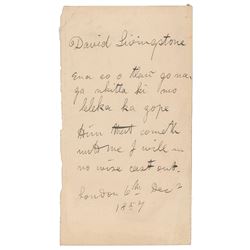 David Livingstone
Ena eo o tlañ go na
go shitla ki mo
leleka ka gope
Him that cometh
unto me I will in
no wise cast out.
London 6th Decr
1857